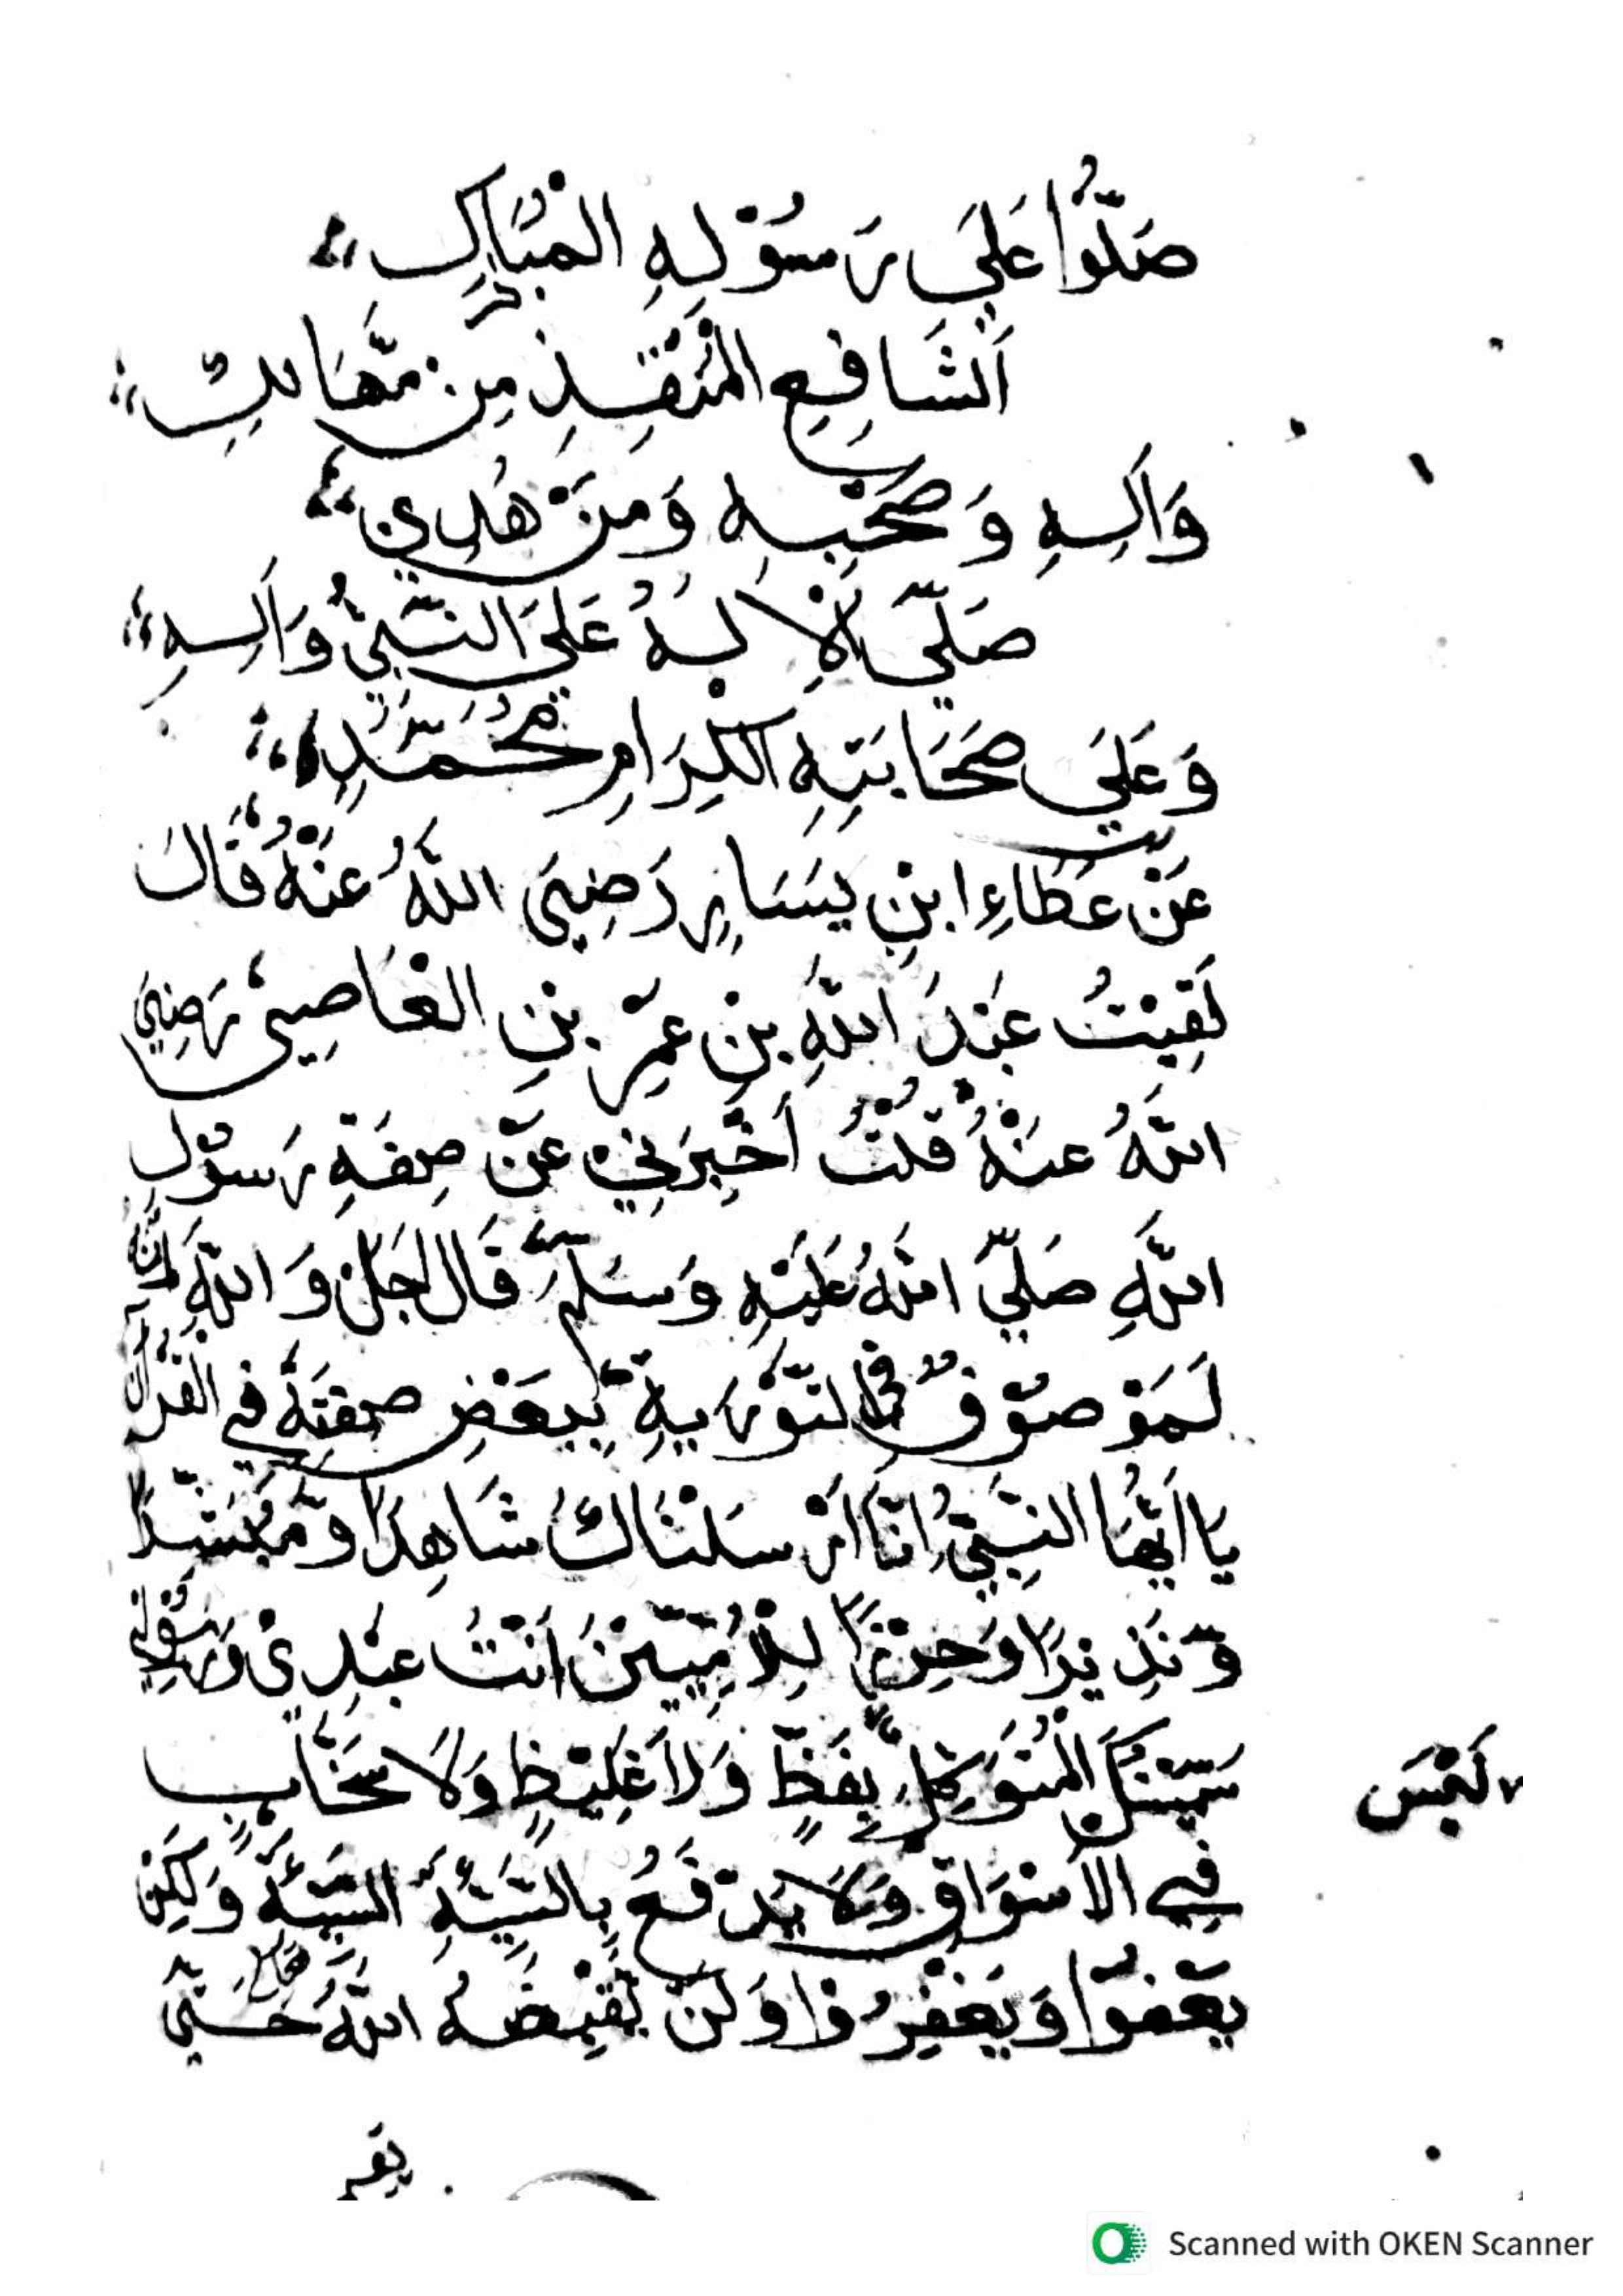 صَلُّوْا عَلَي رَسُوْلِهِ الْمُبَارَكِ
اَلشَّافِعِ الْمُنْقِذِ مِنْ مَّهَالِكِ
وَاَلِهِ وَصَحْبِهِ وَمَنْ هُدِيْ
صَلَّي الْاِلَهُ عَلَي النَّبِيِّ وَاَلِهِ
وَعَلَي صَحَابَتِهِ الْكِرَامِ مُحَمَّدٍ
عَنْ عَطَاءِ ابْنِ يَسَارٍ رَضِيَ اللَّهُ عَنْهُ قَالَ
لَقِيْتُ عَبْدَ اللَّهِ بْنِ عَمِرِ بْنِ الْعَاصِيْ رَضِيَ
اللَّهُ عَنْهُ قُلْتُ اَخْبِرْنِيْ عَنْ صِفَةِ رَسُوْلِ
اللَّهِ صَلَّي اللَّهُ عَلَيْهِ وَسَلَّمَ قَالَ اَجَلْ وَاللَّهِ اِنَّهُ
لَمَوْصُوْفٌ فِي التَّوْرَيةِ بِبَعْضِ صِفَتِهِ فِي الْقُرْاَنِ
يَا اَيُّهَا النَّبِيُّ اِنَّا اَرْسَلْنَاكَ شَاهِدًا وَّمُبَشِّرًا
وَّنَذِيْرًا وَحِرْزًا لِلْاُمِّيِّيْنَ اَنْتَ عَبْدِيْ وَرَسُوْلِيْ
سَمَّيْتُكَ الْمُتَوَكِّلَ بِفَظٍّ وَلَا غَلِيْظٍ وَلَا سَخَّابٍ
لَيْسَ
فِي الْاَسْوَاقِ وَلَا يَدْفَعُ بِالسَّيِّئَةِ السَّيِّئَةَ وَلَكِنْ
يَعْفُوْا وَيَغْفِرُوْا وَلَنْ يَقْبِضَهُ اللَّهُ حَتَّي
يقـ
Scanned with OKEN Scanner